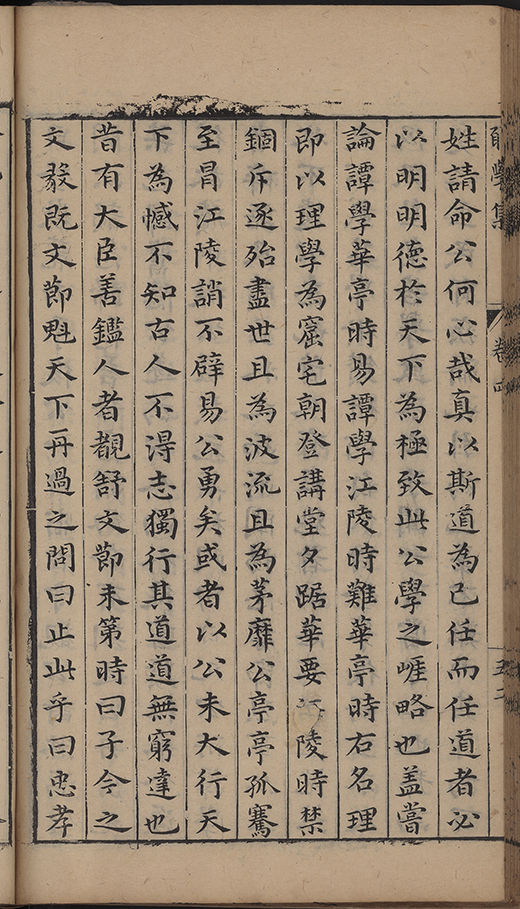 學集 卷四
姓請命公何心哉真以斯道為己任而任道者必
以明明德於天下為極致此公學之崕略也蓋嘗
論譚學華亭時易譚學江陵時難華亭時右名理
即以理學為窟宅朝登講堂夕踞華要江陵時禁
錮斥逐殆盡世且為波流且為茅靡公亭亭孤騫
至冒江陵誚不辟易公勇矣或者以公未大行天
下為憾不知古人不淂志獨行其道道無窮達也
昔有大臣善鑑人者覩舒文莭未第時曰子今之
文毅既文莭魁天下再過之問曰止此乎曰忠孝